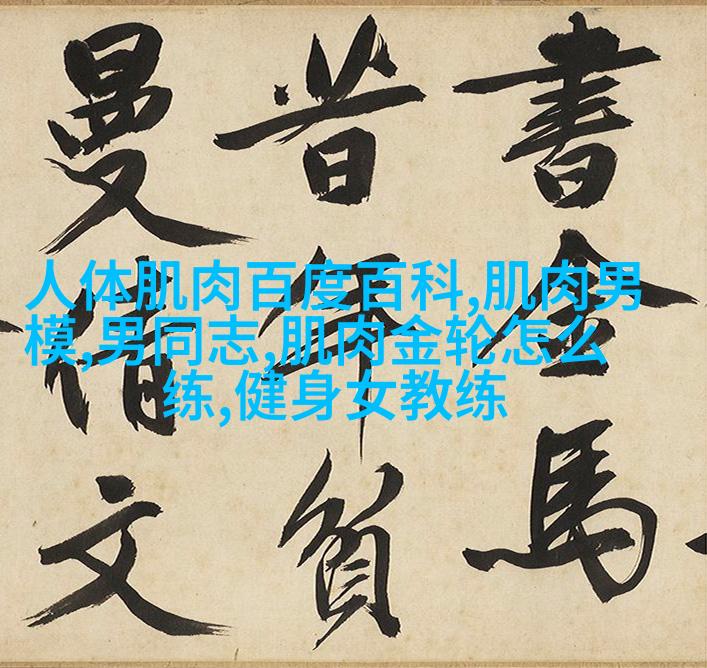 人体肌肉百度百科,肌肉男
模,男同志,肌肉金轮怎么
练,健身女教练
書金馬
昔年貧
曼倩文